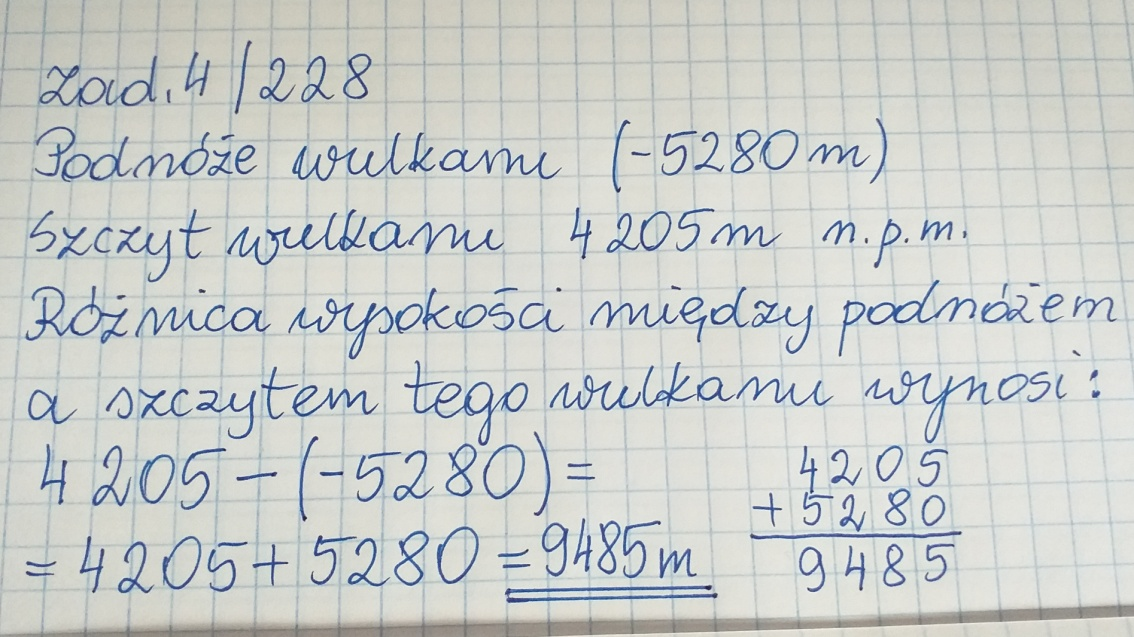 zad. 4 / 228
Podnóże wulkanu (-5280 m)
Szczyt wulkanu 4205 m n.p.m.
Różnica wysokości między podnóżem
a szczytem tego wulkanu wynosi:
4205 - (-5280) =
= 4205 + 5280 = 9485 m
4205
+ 5280
9485